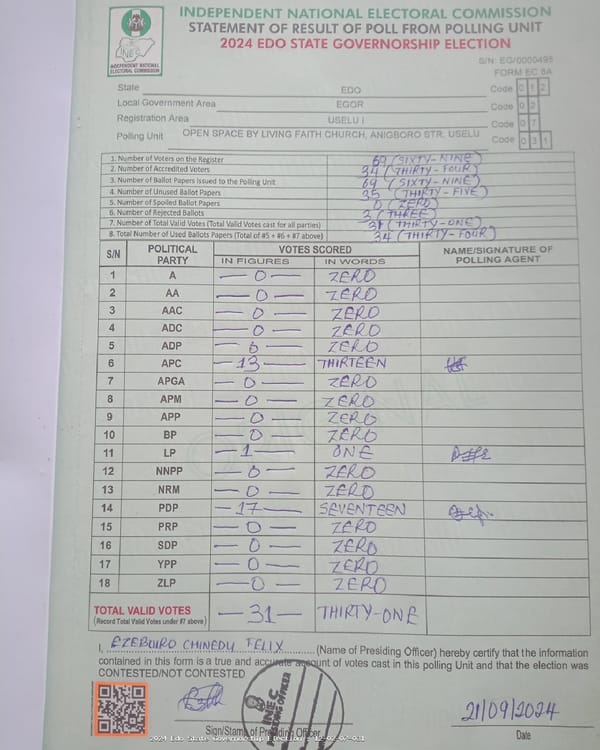 INDEPENDENT NATIONAL ELECTORAL COMMISSION
STATEMENT OF RESULT OF POLL FROM POLLING UNIT
2024 EDO STATE GOVERNORSHIP ELECTION
INEC
INDEPENDENT NATIONAL
ELECTORAL COMMISSION
S/N: EG/0000495
FORM EC 8A
State EDO Code 0 1 2
Local Government Area EGOR Code 0 2
Registration Area USELU I Code 0 7
Polling Unit OPEN SPACE BY LIVING FAITH CHURCH, ANIGBORO STR. USELU Code 0 3 1
1. Number of Voters on the Register 69 (SIXTY-NINE)
2. Number of Accredited Voters 34 (THIRTY-FOUR)
3. Number of Ballot Papers Issued to the Polling Unit 69 (SIXTY-NINE)
4. Number of Unused Ballot Papers 35 (THIRTY-FIVE)
5. Number of Spoiled Ballot Papers 0 (ZERO)
6. Number of Rejected Ballots 3 (THREE)
7. Number of Total Valid Votes (Total Valid Votes cast for all parties) 31 (THIRTY-ONE)
8. Total Number of Used Ballots Papers (Total of #5 + #6 + #7 above) 34 (THIRTY-FOUR)
S/N POLITICAL PARTY VOTES SCORED NAME/SIGNATURE OF POLLING AGENT
IN FIGURES IN WORDS
1 A — 0 — ZERO
2 AA — 0 — ZERO
3 AAC — 0 — ZERO
4 ADC — 0 — ZERO
5 ADP — 0 — ZERO
6 APC — 13 — THIRTEEN
7 APGA — 0 — ZERO
8 APM — 0 — ZERO
9 APP — 0 — ZERO
10 BP — 0 — ZERO
11 LP — 1 — ONE
12 NNPP — 0 — ZERO
13 NRM — 0 — ZERO
14 PDP — 17 — SEVENTEEN
15 PRP — 0 — ZERO
16 SDP — 0 — ZERO
17 YPP — 0 — ZERO
18 ZLP — 0 — ZERO
TOTAL VALID VOTES — 31 — THIRTY-ONE
(Record Total Valid Votes under #7 above)
I, EZEBUIRO CHINEDU FELIX (Name of Presiding Officer) hereby certify that the information
contained in this form is a true and accurate account of votes cast in this polling Unit and that the election was
CONTESTED/NOT CONTESTED
INEC
PRESIDING OFFICER
21/09/2024
Sign/Stamp of Presiding Officer Date
2024 Edo State Governorship Election